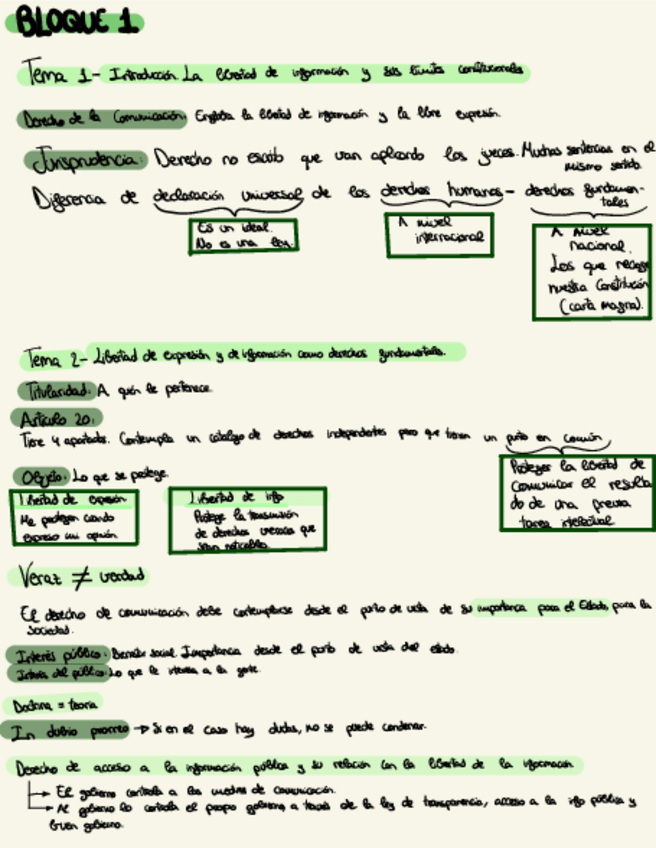 BLOQUE 1
Tema 1- Introducción. La libertad de información y sus límites constitucionales
Derecho de la Comunicación: Engloba la libertad de información y la libre expresión.
Jurisprudencia: Derecho no escrito que van aplicando los jueces. Muchas sentencias en el
mismo sentido.
Diferencia de declaración universal de los derechos humanos - derechos fundamen-
tales
Es un ideal.
No es una ley.
A nivel
internacional
A nivel
nacional.
Los que recoge
nuestra Constitución
(carta magna).
Tema 2- Libertad de expresión y de información como derechos fundamentales.
Titularidad: A quién le pertenece.
Artículo 20:
Tiene 4 apartados. Contempla un catálogo de derechos independientes pero que tienen un punto en común
Objeto: Lo que se protege.
Libertad de expresión
Me protegen cuando
expreso mi opinión
Libertad de info
Protege la transmisión
de derechos veraces que
sean noticiables
Proteger la libertad de
comunicar el resulta
do de una previa
tarea intelectual
Veraz ≠ verdad
El derecho de comunicación debe contemplarse desde el punto de vista de su importancia para el Estado, para la
sociedad.
Interés público: social. Importancia desde el punto de vista del estado.
Interés del público: Lo que le interesa a la gente.
Doctrina = teoría
In dubio proreo → Si en el caso hay dudas, no se puede condenar.
Derecho de acceso a la información pública y su relación con la libertad de la información
→ El gobierno controla a los medios de comunicación.
→ Al gobierno lo controla el propio gobierno a través de la ley de transparencia, acceso a la info pública y
buen gobierno.